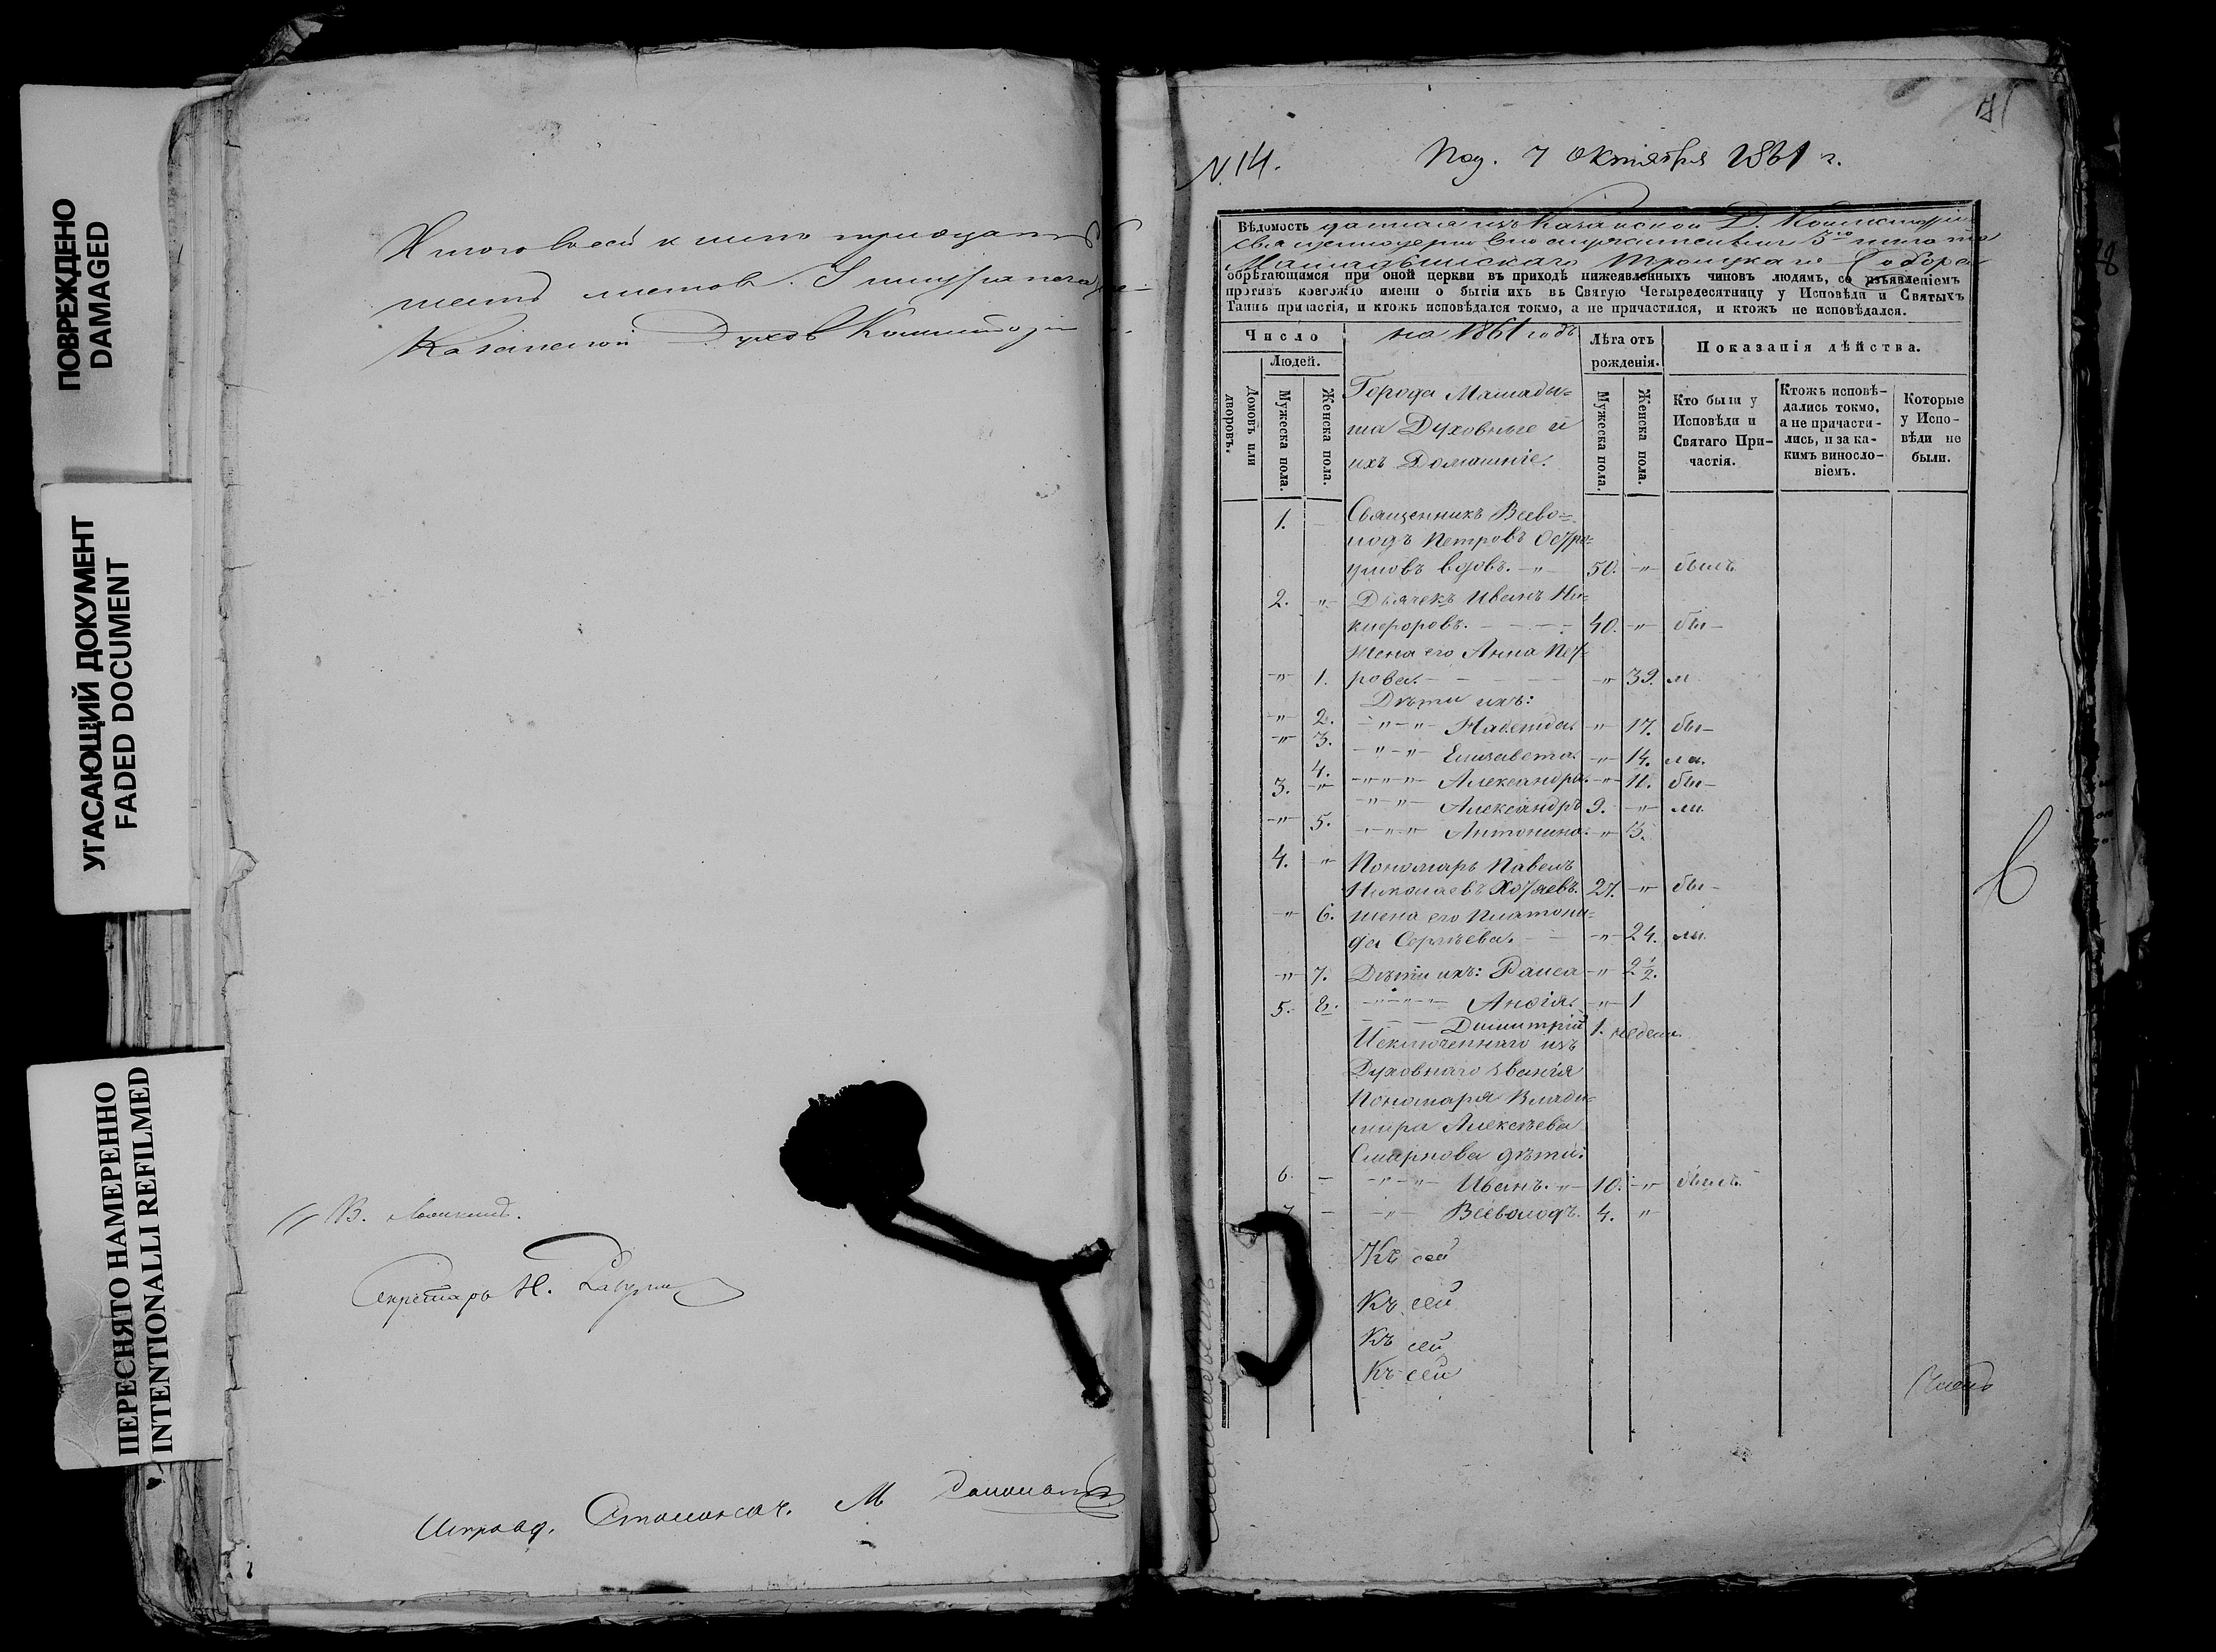 ПОВРЕЖДЕНО
DAMAGED
УГАСАЮЩИЙ ДОКУМЕНТ
FADED DOCUMENT
ПЕРЕСНЯТО НАМЕРЕННО
INTENTIONALLI REFILMED
Итого всей к
листов.
Казанской Духов Консисторіи
В.
Секретарь Н.
Исправ. Столонач. М
N. 14.
Пол. 7 Октября 1861 г.
Вѣдомость данная изъ Казанской Д. Консисторіи
священноцерковнослужителямъ
Мамадышскаго Троицкаго Собора
обрѣтающимся при оной церкви въ приходѣ нижеявленныхъ чиновъ людямъ, со изъявленіемъ
противъ коегождо имени о бытіи ихъ въ Святую Четыредесятницу у Исповѣди и Святыхъ
Таинъ причастія, и ктожъ исповѣдался токмо, а не причастился, и ктожъ не исповѣдался.
на 1861 годъ
Число
Людей.
Домовъ или дворовъ.
Мужеска пола.
Женска пола.
Города Мамады=
ша Духовные и
ихъ Домашніе.
Лѣта отъ
рожденія.
Мужеска пола.
Женска пола.
Показанія дѣйства.
Кто были у
Исповѣди и
Святаго При-
частія.
Ктожъ исповѣ-
дались токмо,
а не причасти-
лись, и за ка-
кимъ винosло-
віемъ.
Которые
у Испо-
вѣди не
были.
1. - Священникъ Всево=
лодъ Петровъ Остро=
умовъ вдовъ. - " 50. - " - былъ
2. " Дьячекъ Иванъ Ни=
кифоровъ. - - - - 40. - " - бы -
Жена его Анна Пет=
" 1. рова. - " 39. ли
Дѣти ихъ:
" 2. - " - " - Надежда. " 17. бы -
" 3. - " - " - Елизавета. " 14. ла.
4. - " - " - Александра. - " - 11. бы -
3. " - " - " - Александръ 9. - " - ли
" 5. - " - " - Антонина. " 3.
4. " Пономарь Павелъ
Николаевъ Хотяевъ. 27. - " - бы -
" 6. жена его Платони=
да Сергѣева. - " - 24. ли.
" 7. Дѣти ихъ: Раиса - " 2 1/2.
5. 8. - " - " - Анѳія. - " - 1
- - - Димитрій 1. недели.
Исключеннаго изъ
Духовнаго званія
Пономаря Влади=
мира Алексѣева
Смирнова дѣти:
6. - - " - " - Иванъ. " - 10. - " - былъ.
7 - - " - Всеволодъ. 4. "
Къ сей
Къ сей
Къ сей
Къ сей